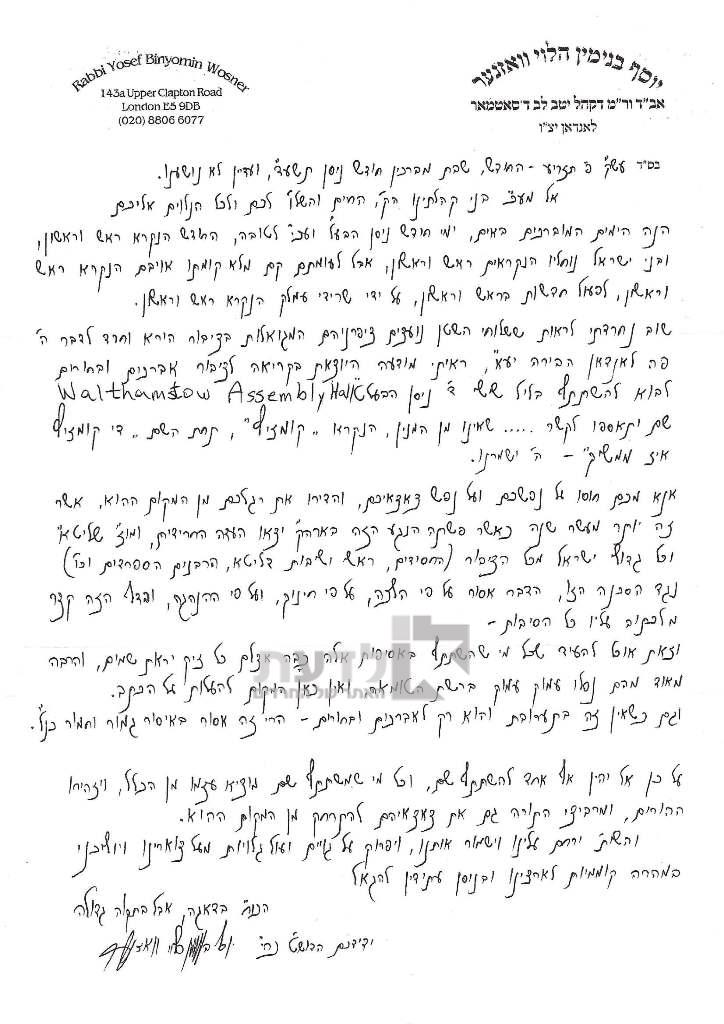 Rabbi Yosef Binyomin Wosner
143a Upper Clapton Road
London E5 9DB
(020) 8806 6077
יוסף בנימין הלוי וואזנער
אב"ד ור"מ דקהל יטב לב ד'סאטמאר
לאנדאן יצ"ו
בס"ד עש"ק פ' תזריע - החודש, שבת מברכין חודש ניסן תשע"ד, ועדיין לא נושענו.
אל מע"כ בני קהלתינו הק', החיים והשלו' לכם ולכל הנלוים אליכם
הנה הימים המבורכים באים, ימי חודש ניסן הבעל"ט ועכ"י לטובה, החודש הנקרא ראש וראשון,
ובני ישראל נוחליו הנקראים ראש וראשון, אבל לעומתם קם מלא קומתו אויבם הנקרא ראש
וראשון, לפעול חדשות בראש וראשון, על ידי שרידי עמלק הנקרא ראש וראשון.
שוב נחרדתי לראות ששלוחי השטן נועצים ציפרניהם המגואלות בציבור הירא וחרד לדבר ה'
פה לאנדאן הבירה יע"א, ראיתי מודעה היוצאת בקריאה לציבור אברכים ובחורים
לבוא להשתתף בליל ששי ד' ניסן הבעל"ט Walthamstow Assembly Hall
שם יתאספו לקשר ..... שאינו מן המנין, הנקרא ,,קומזיץ", תחת השם ,,די קומזיץ
איז ממשיך" - ה' ישמרנו.
אנא מכם חוסו על נפשכם ועל נפש צאצאיכם, והדירו את רגלכם מן המקום ההוא, אשר
זה יותר מעשר שנה כאשר פשתה הנגע הזה בארה"ק יצאו העדה החרידית, ומו"ר שליט"א
וכל גדולי ישראל מכל הציבור (חסידים, ראשי ישיבות דליטא, הרבנים הספרדים וכו')
נגד הסכנה הזו, הדבר אסור על פי הלכה, על פי חינוך, ועל פי ההנהגה, והדף הזה קצר
מלכתוב עליו כל הסיבות -
וזאת אוכל להעיד שכל מי שהשתתף באסיפות אלה כבר אצלם כל זיק יראת שמים, והרבה
מאוד מהם נפלו עמוק עמוק ברשת הטומאה ואין כאן המקום להעלות על הכתב.
וגם כשאין זה בתערובת והוא רק לאברכים ובחורים - הרי זה אסור באיסור גמור וחמור כנ"ל.
על כן אל יהין אף אחד להשתתף שם, וכל מי שמשתתף שם מוציא עצמו מן הכלל, ויזהירו
ההורים, ומרביצי התורה גם את צאצאיהם להתרחק מן המקום ההוא.
והשי"ת ירחם עלינו וישמור אותנו, ויפרוק עול גויים ועול גלויות מעל צוארינו ויוליכני
במהרה קוממיות לארצינו ובניסן עתידין להגאל
הכו"ח בדאגה, אבל בתקוה גדולה
ידידכם הדוש"ט